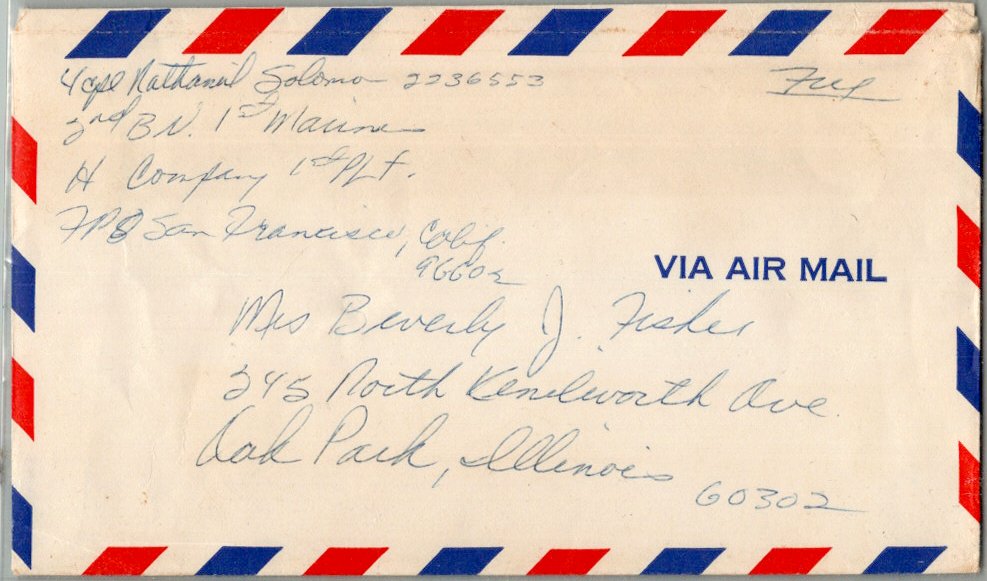 L/Cpl Nathanial Solomo 2236553
Free
2nd BN. 1st Marine
H Company 1st PLT.
FPO San Francisco, Calif.
96602
VIA AIR MAIL
Mrs Beverly J. Fisher
245 North Kenilworth Ave.
Oak Park, Illinois
60302